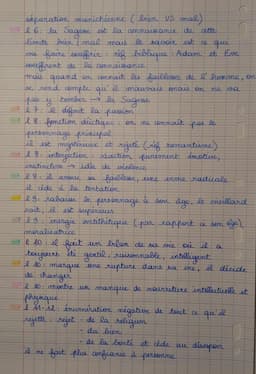 séparation manichéenne (bien VS mal)
l 6 : la Sagesse est la connaissance de cette
limite bien / mal mais le savoir est ce qui
me faire souffrir : réf biblique : Adam et Eve
souffrent de la connaissance
mais quand on connait les faiblesses de l'homme, on
se rend compte qu'il mauvais mais on ne va
pas y tomber → la Sagesse
l 7 : il défini la passion
l 8 : fonction déictique : on ne connait pas le
personnage principal
il est mystérieux et rejeté (réf romantisme)
l 8 : interjection : réaction, purement émotive,
instinctive → idée de violence
l 8 : il avoue sa faiblesse, une arme radicale
il cède à la tentation
l 9 : rabaisse le personnage à son âge, le vieillard
sait, il est supérieur
l 9 : énergie antithétique (par rapport à son âge)
moralisatrice
l 10 : il fait un bilan de sa vie où il a
toujours été gentil, raisonnable, intelligent
l 10 : marque une rupture dans sa vie, il décide
de changer
l 10 : montre un manque de nourriture intellectuelle et
physique
l 11-12 : énumération négative de tout ce qu'il
rejette : rejet - de la religion
- du bien
- de la bonté et cède au désespoir
il ne fait plus confiance à personne